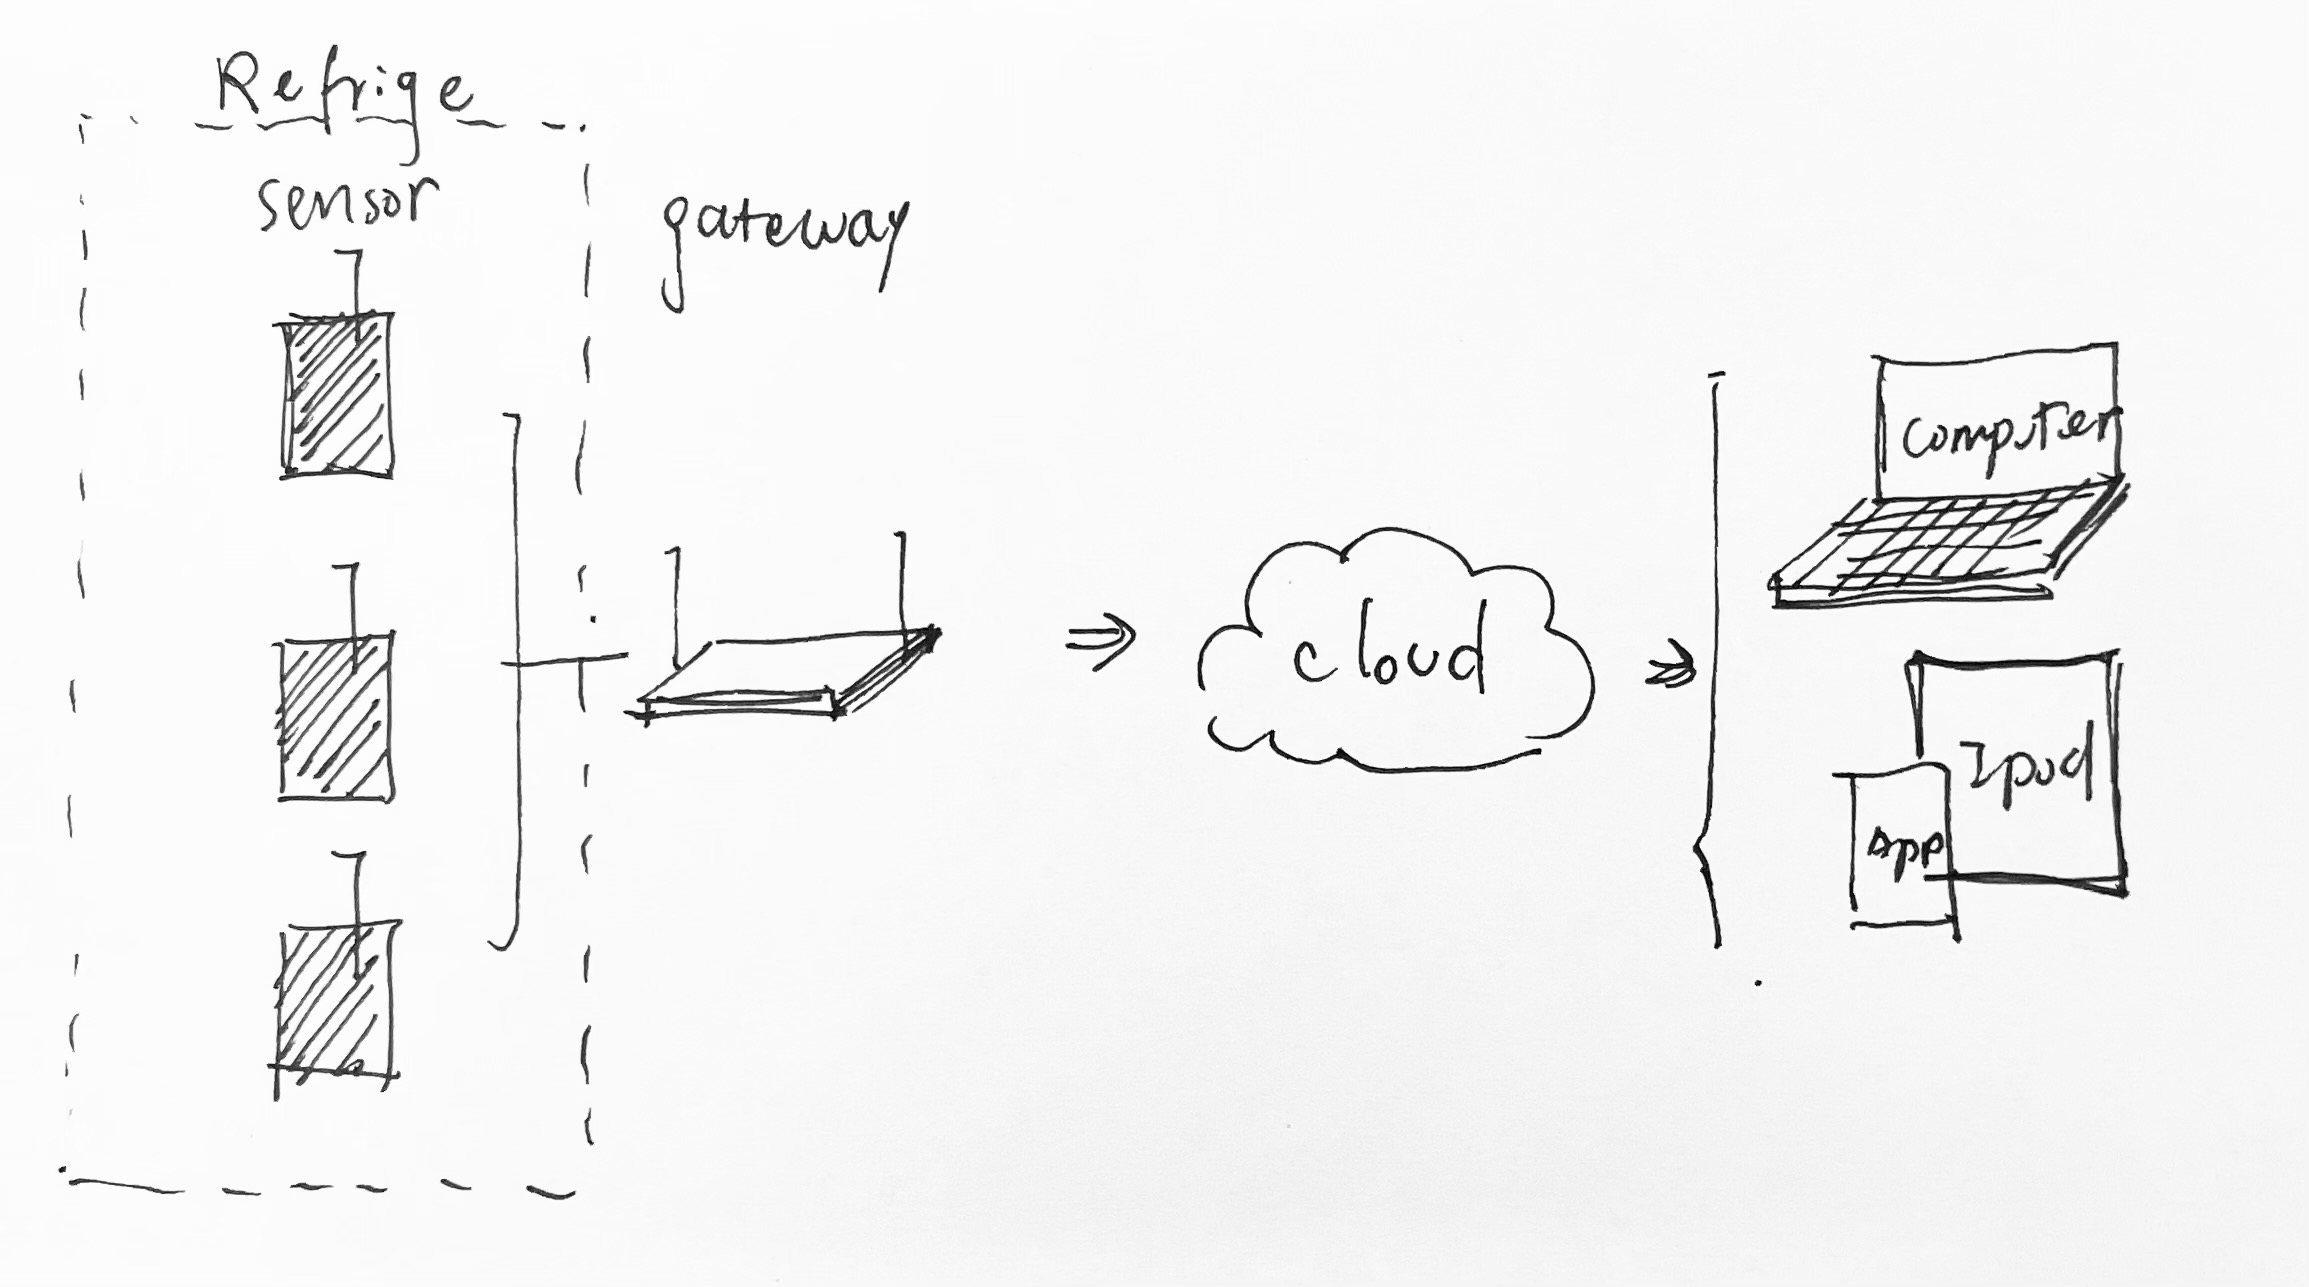 Refrige
sensor
gateway
cloud
computer
Ipad
App